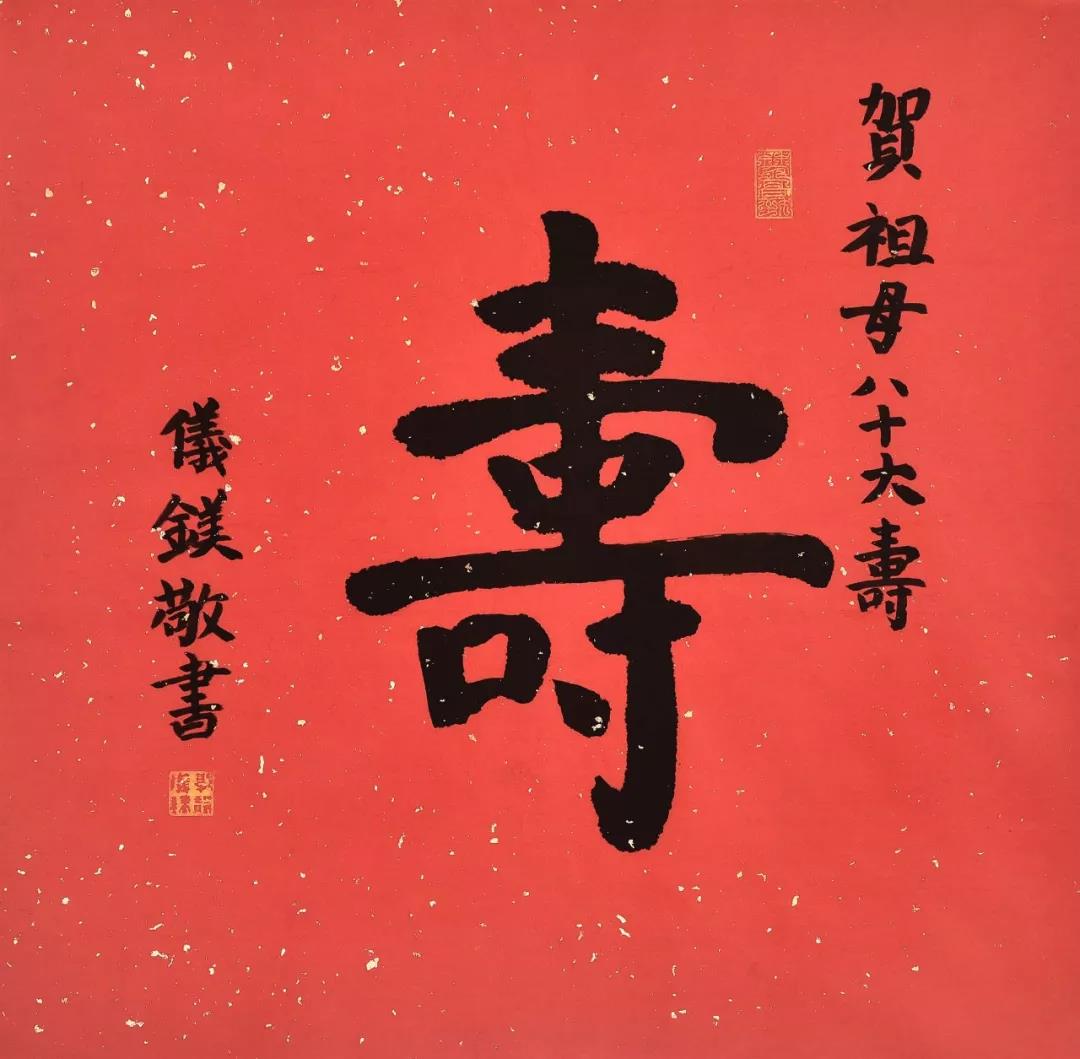 賀祖母八十大壽
壽
儀鎂敬書